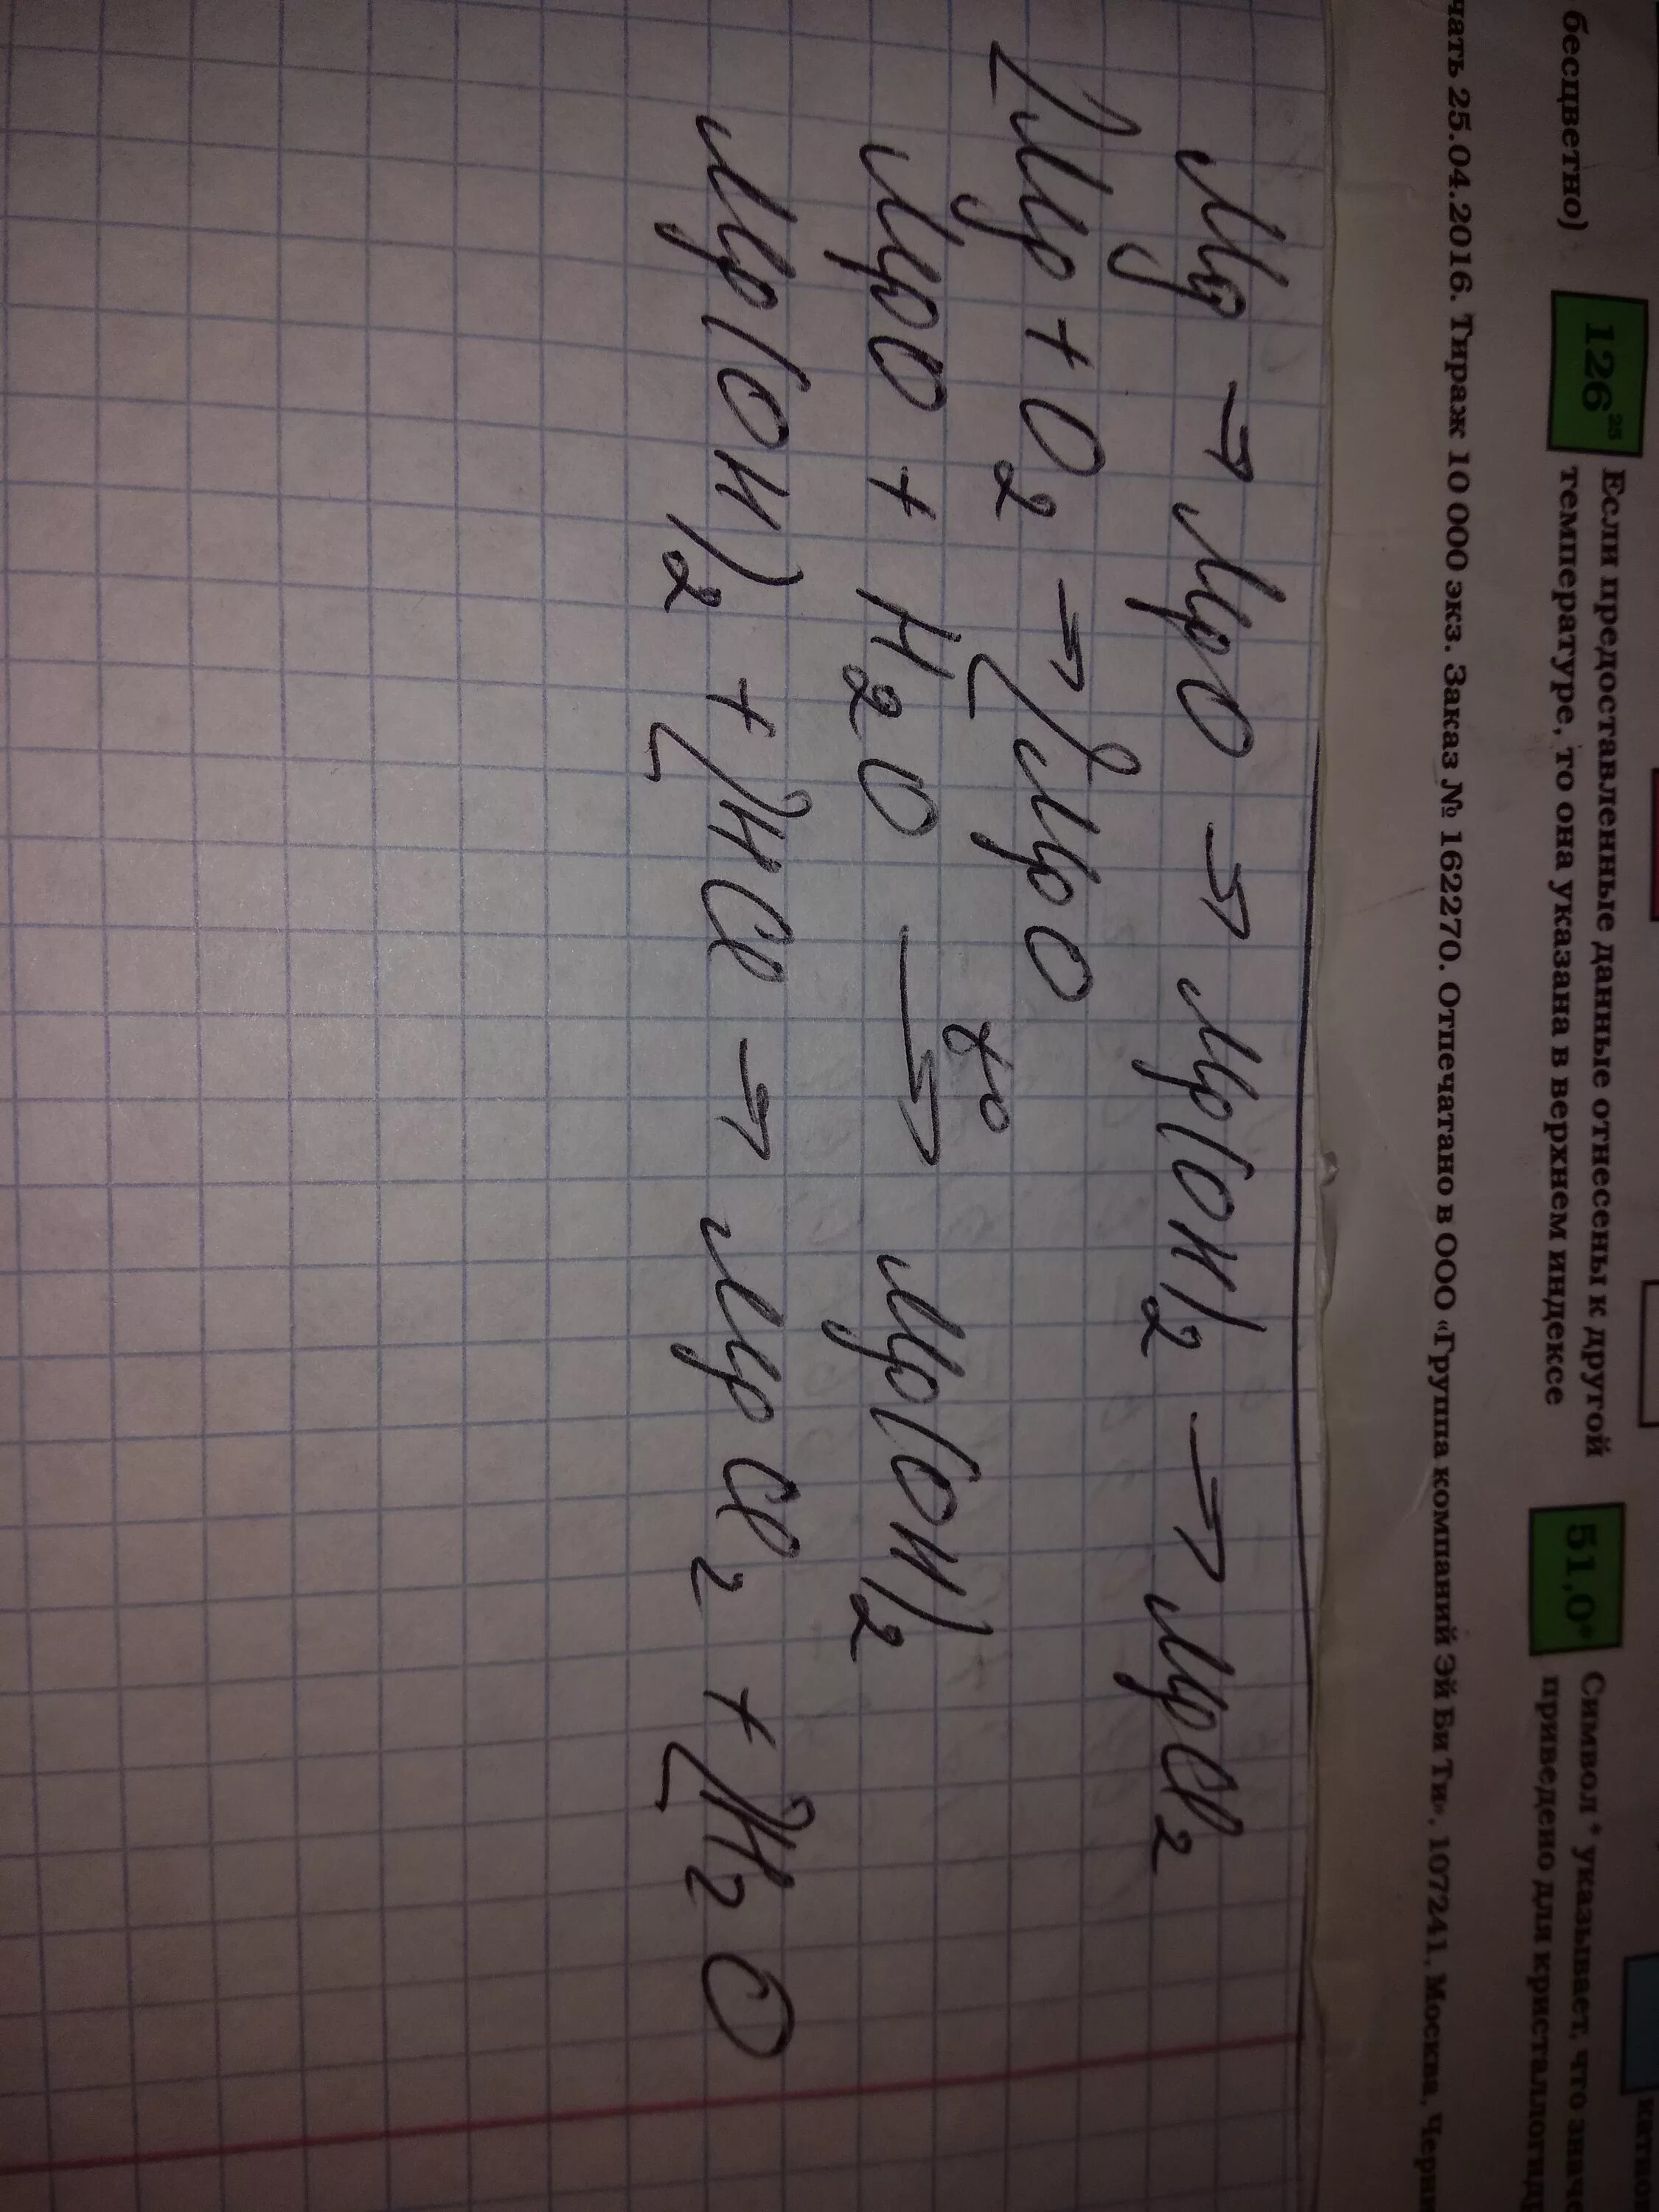 бесцветно)
126²⁵
Если предоставленные данные отнесены к другой
температуре, то она указана в верхнем индексе
51,0*
Символ * указывает, что
приведено для
чать 25.04.2016. Тираж 10 000 экз. Заказ № 162270. Отпечатано в ООО «Группа компаний Эй Би Ти». 107241, Москва,
Mg → MgO → Mg(OH)₂ → MgCl₂
2Mg + O₂ → 2MgO
MgO + H₂O →t° Mg(OH)₂
Mg(OH)₂ + 2HCl → MgCl₂ + 2H₂O